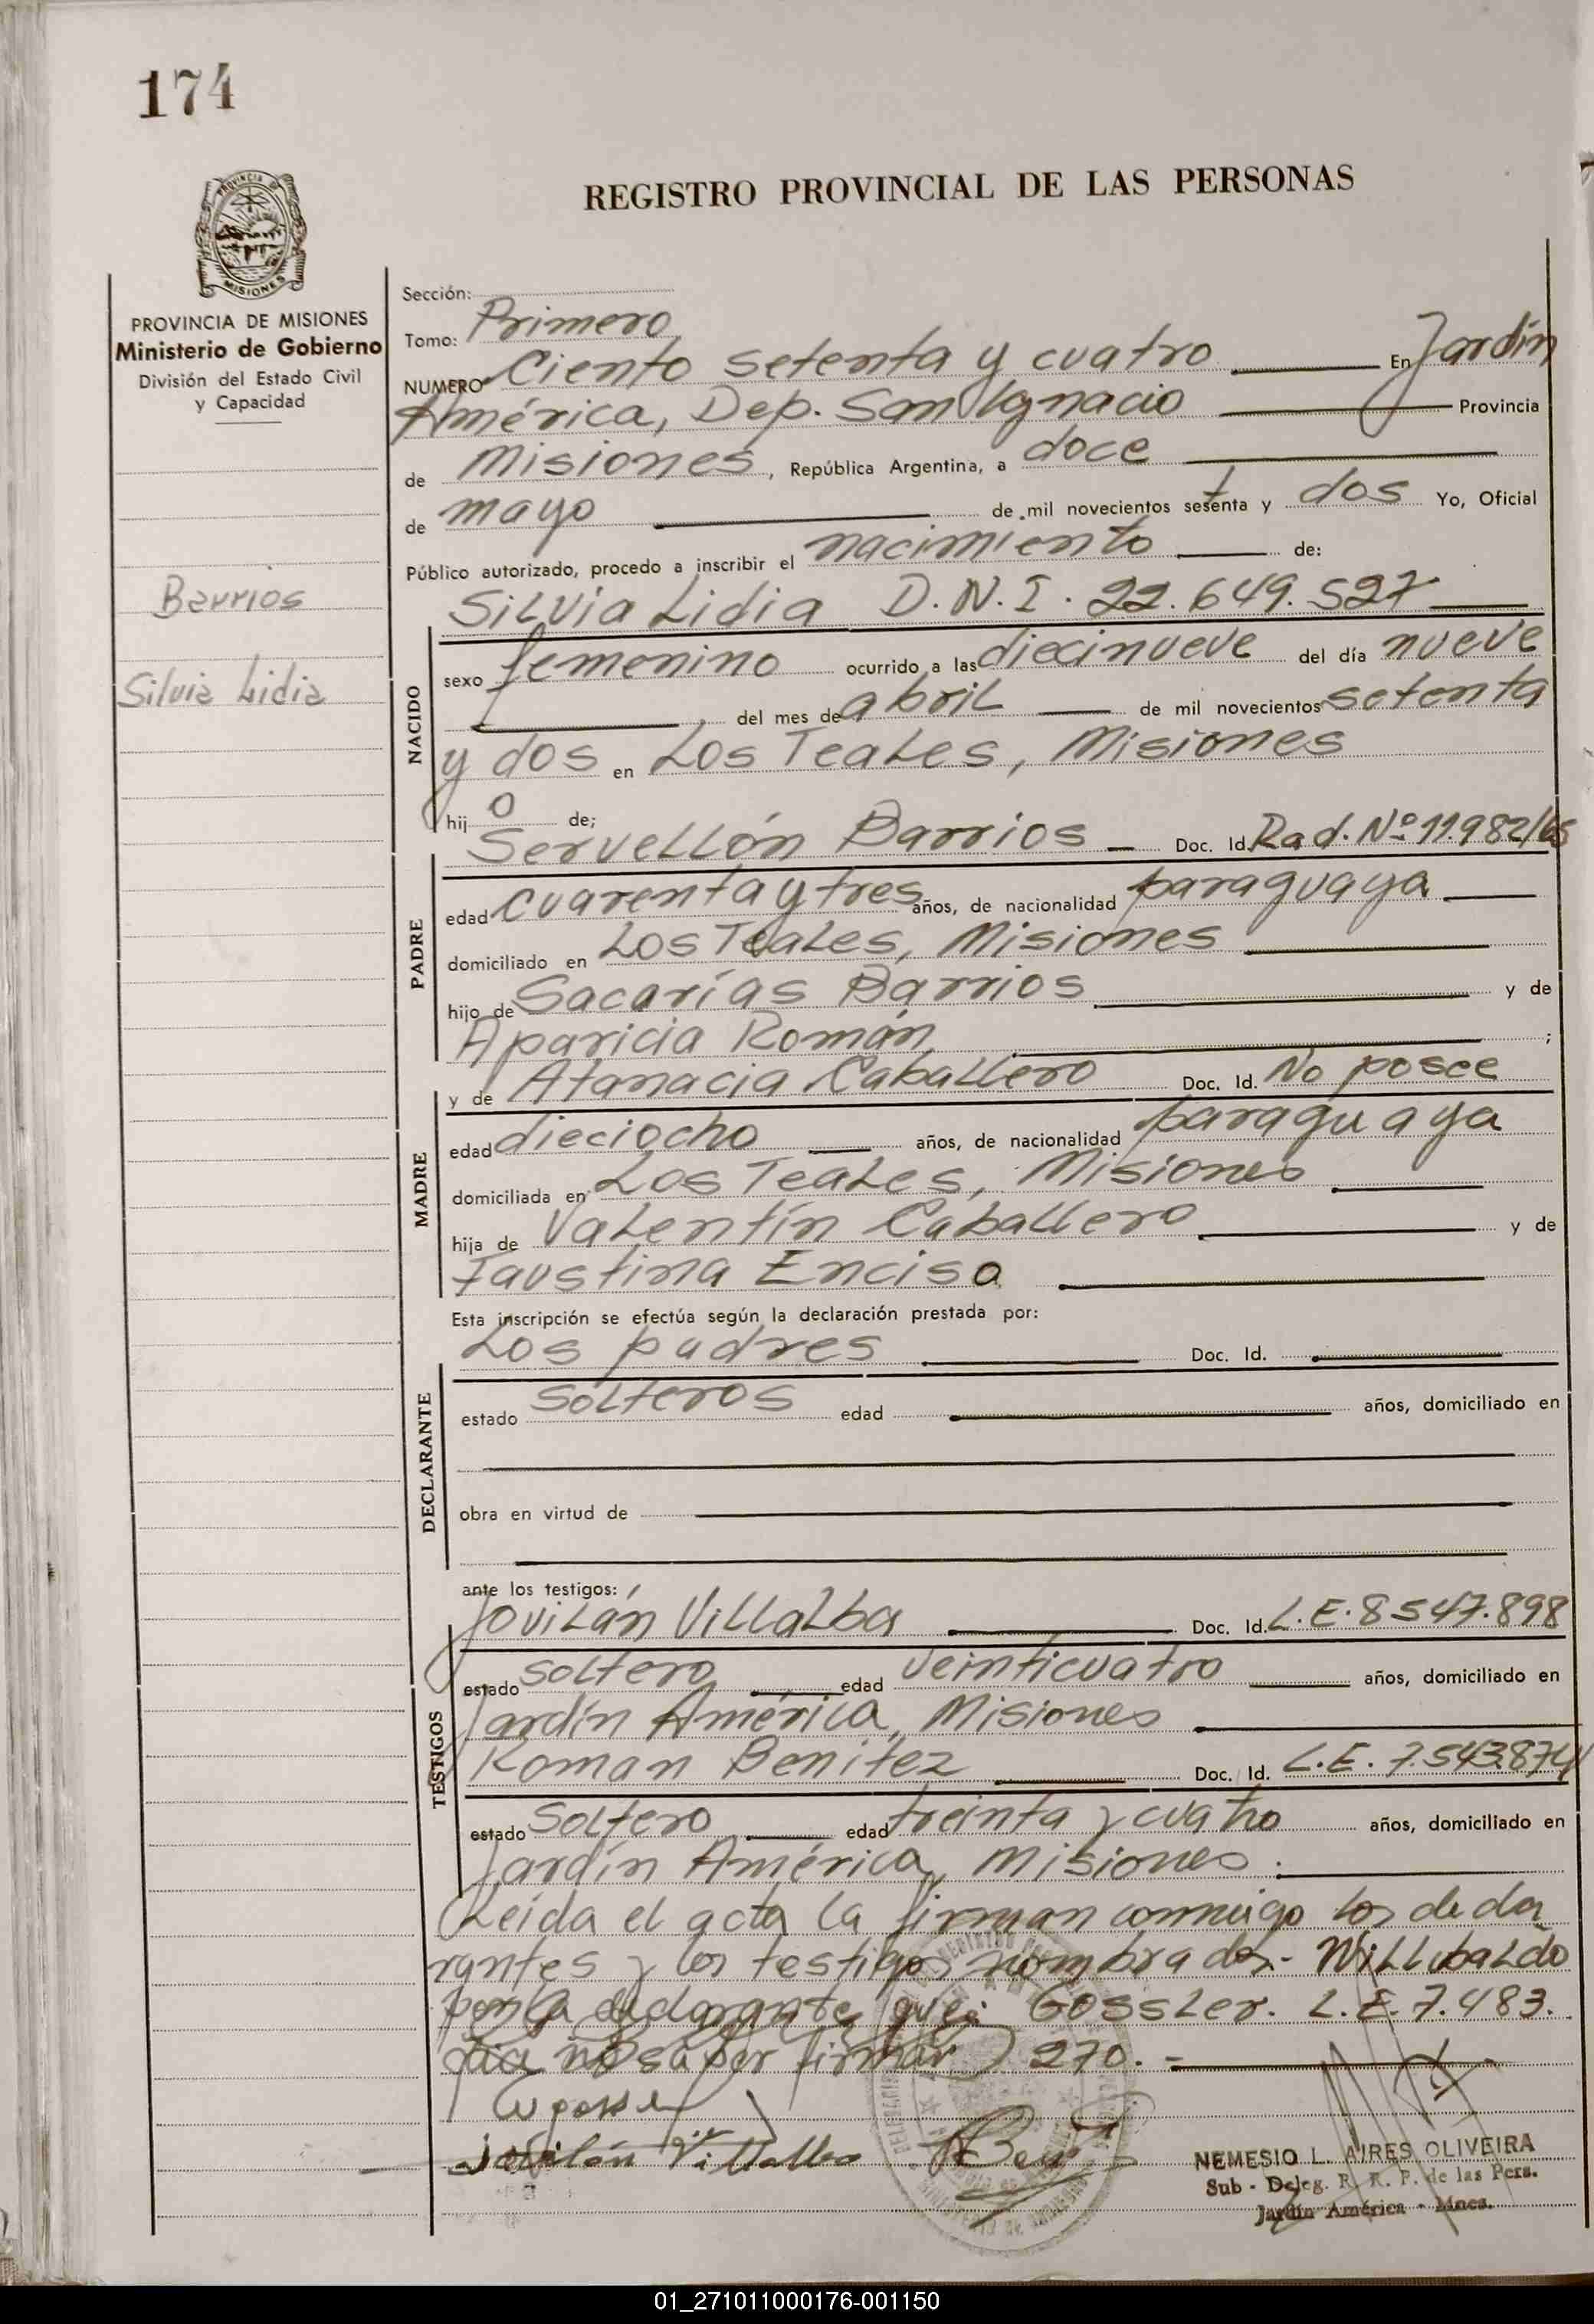 174
REGISTRO PROVINCIAL DE LAS PERSONAS
PROVINCIA DE MISIONES
Ministerio de Gobierno
División del Estado Civil
y Capacidad
Barrios
Silvia Lidia
Sección:
Tomo: Primero
NUMERO Ciento setenta y cuatro En Jardín
América, Dep. San Ignacio Provincia
de Misiones, República Argentina, a doce
de mayo de mil novecientos setenta y dos Yo, Oficial
Público autorizado, procedo a inscribir el nacimiento de:
Silvia Lidia D.N.I. 22.649.527
NACIDO
sexo femenino ocurrido a las diecinueve del día nueve
del mes de abril de mil novecientos setenta
y dos en Los Teales, Misiones
hij o de;
Servellón Barrios Doc. Id. Rad. Nº 11.982/65
PADRE
edad cuarenta y tres años, de nacionalidad paraguaya
domiciliado en Los Teales, Misiones
hijo de Sacarías Barrios y de
Aparicia Román ;
y de Atanacia Caballero Doc. Id. No posee
MADRE
edad dieciocho años, de nacionalidad paraguaya
domiciliada en Los Teales, Misiones
hija de Valentín Caballero y de
Faustina Enciso
Esta inscripción se efectúa según la declaración prestada por:
Los padres Doc. Id.
DECLARANTE
estado solteros edad años, domiciliado en
obra en virtud de
ante los testigos:
Jovilán Villalba Doc. Id. L.E. 8547.898
TESTIGOS
estado soltero edad veinticuatro años, domiciliado en
Jardín América, Misiones
Roman Benitez Doc. Id. L.E. 7.543.874
estado soltero edad treinta y cuatro años, domiciliado en
Jardín América, Misiones.
Leída el acta la firman conmigo los decla
rantes y los testigos nombrados.- Willibaldo
por la declarante que Gossler. L.E. 7.483.
no saber firmar) 270.-
Jovilán Villalba
NEMESIO L. AIRES OLIVEIRA
Sub - Deleg. R. R. P. de las Pers.
Jardín América - Mnes.
01_271011000176-001150